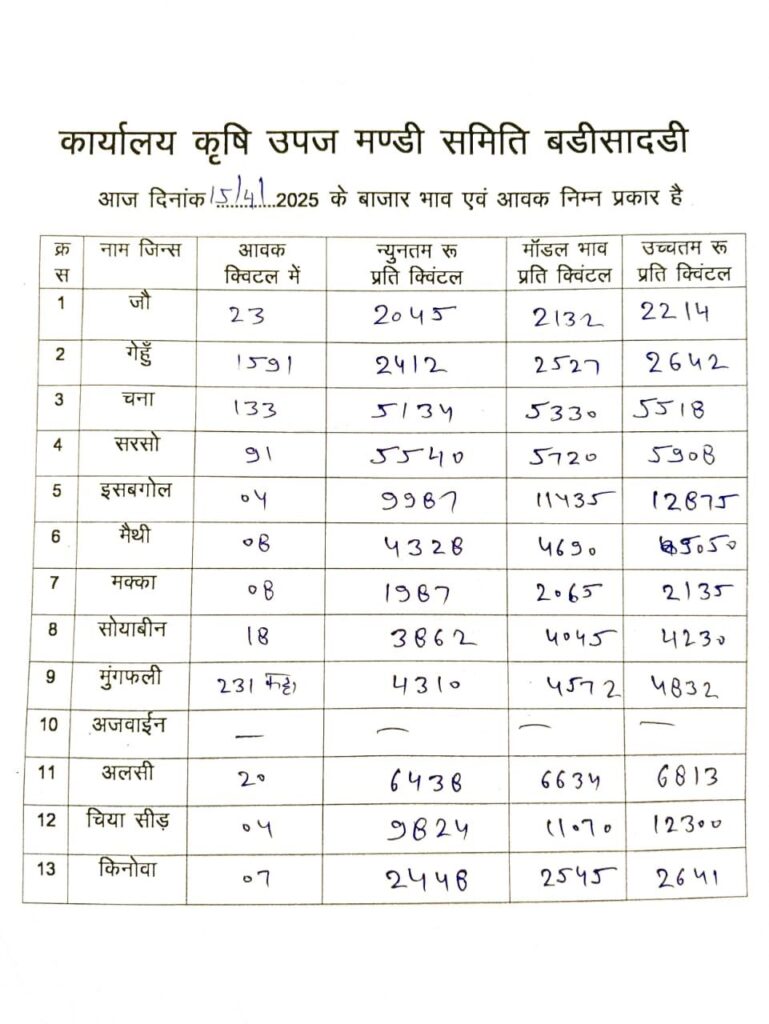 कार्यालय कृषि उपज मण्डी समिति बडीसादडी
आज दिनांक 15/4/2025 के बाजार भाव एवं आवक निम्न प्रकार है
क्र स नाम जिन्स आवक क्विटल में न्युनतम रू प्रति क्विंटल मॉडल भाव प्रति क्विंटल उच्चतम रू प्रति क्विंटल
1 जौ 23 2045 2132 2214
2 गेहुँ 1591 2412 2527 2642
3 चना 133 5134 5330 5518
4 सरसो 91 5540 5720 5908
5 इसबगोल 04 9987 11435 12875
6 मैथी 08 4328 4690 5050
7 मक्का 08 1987 2065 2135
8 सोयाबीन 18 3862 4045 4230
9 मुंगफली 231 कट्टा 4310 4572 4832
10 अजवाईन — — — —
11 अलसी 20 6438 6634 6813
12 चिया सीड़ 04 9824 11070 12300
13 किनोवा 07 2448 2545 2641